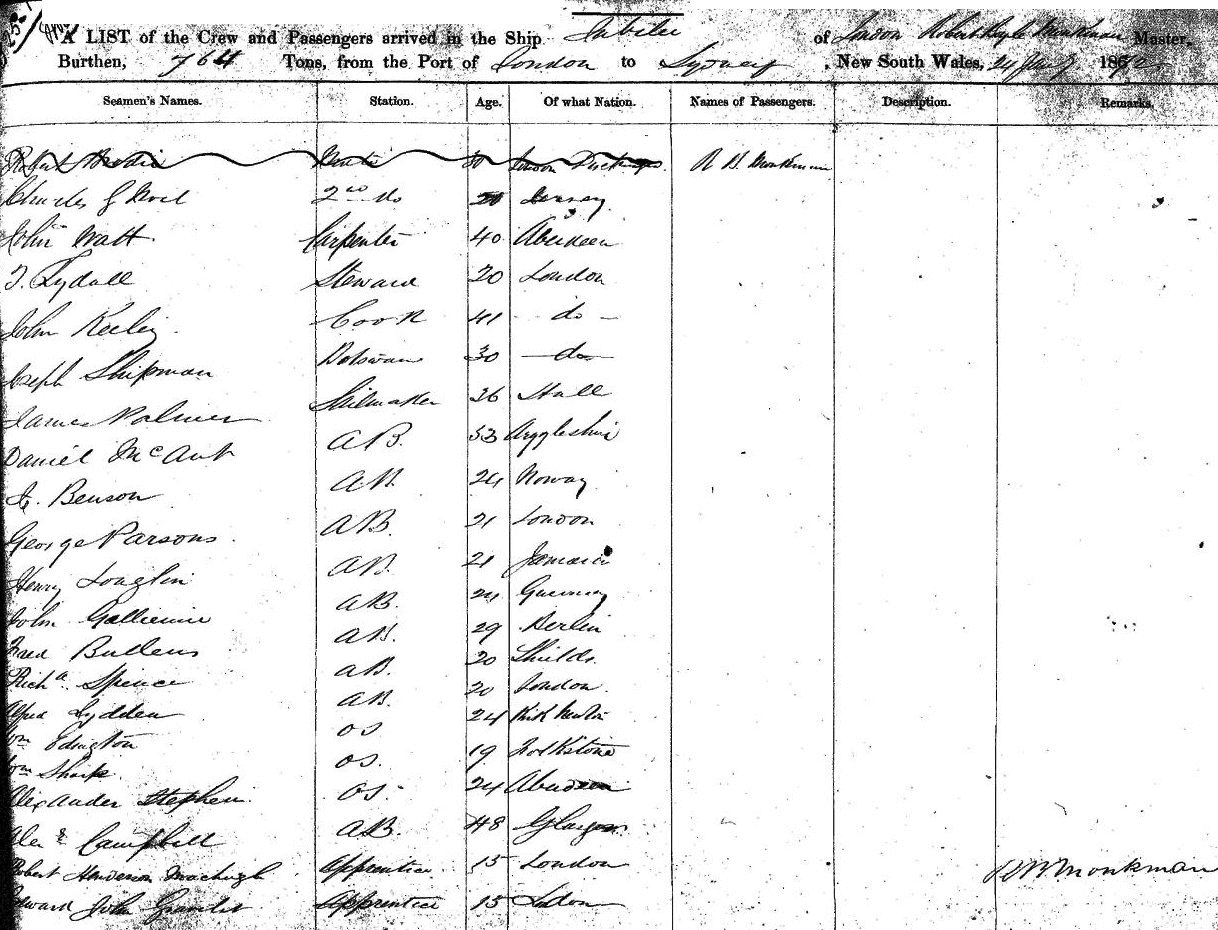 A LIST of the Crew and Passengers arrived in the Ship Jubilee of London Robert Monkman Master,
Burthen, 764 Tons, from the Port of London to Sydney, New South Wales, 24 Jany 1872
Seamen's Names. Station. Age. Of what Nation. Names of Passengers. Description. Remarks,
Robert London R B Monkman
Charles G 2nd do Jersey
John Watt Carpenter 40 Aberdeen
T. Lydall Steward 20 London
John Keeley Cook 41 - do -
Joseph Shipman Botswan 30 - do -
James Palmer Sailmaker 36 Hull
Daniel McAut AB. 53 Argyleshire
Benson AB. 24 Noway
George Parsons. AB. 21 London
Henry Longlin AB. 21 Jamaica
John Gallienne AB. 24 Guernsey
Fred Bullens AB. 29 Berlin
Richd. Spence AB. 20 Shields.
Alfred Lydden AB 20 London.
Wm Edington OS 24 Kirk Newton
Wm Sharp OS. 19 Folkstone
Alexander Stephen OS. 24 Aberdeen
Alexr Campbell AB. 48 Glasgow
Robert Henderson Machugh Apprentice 15 London R B Monkman
Edward John Apprentice 15 London